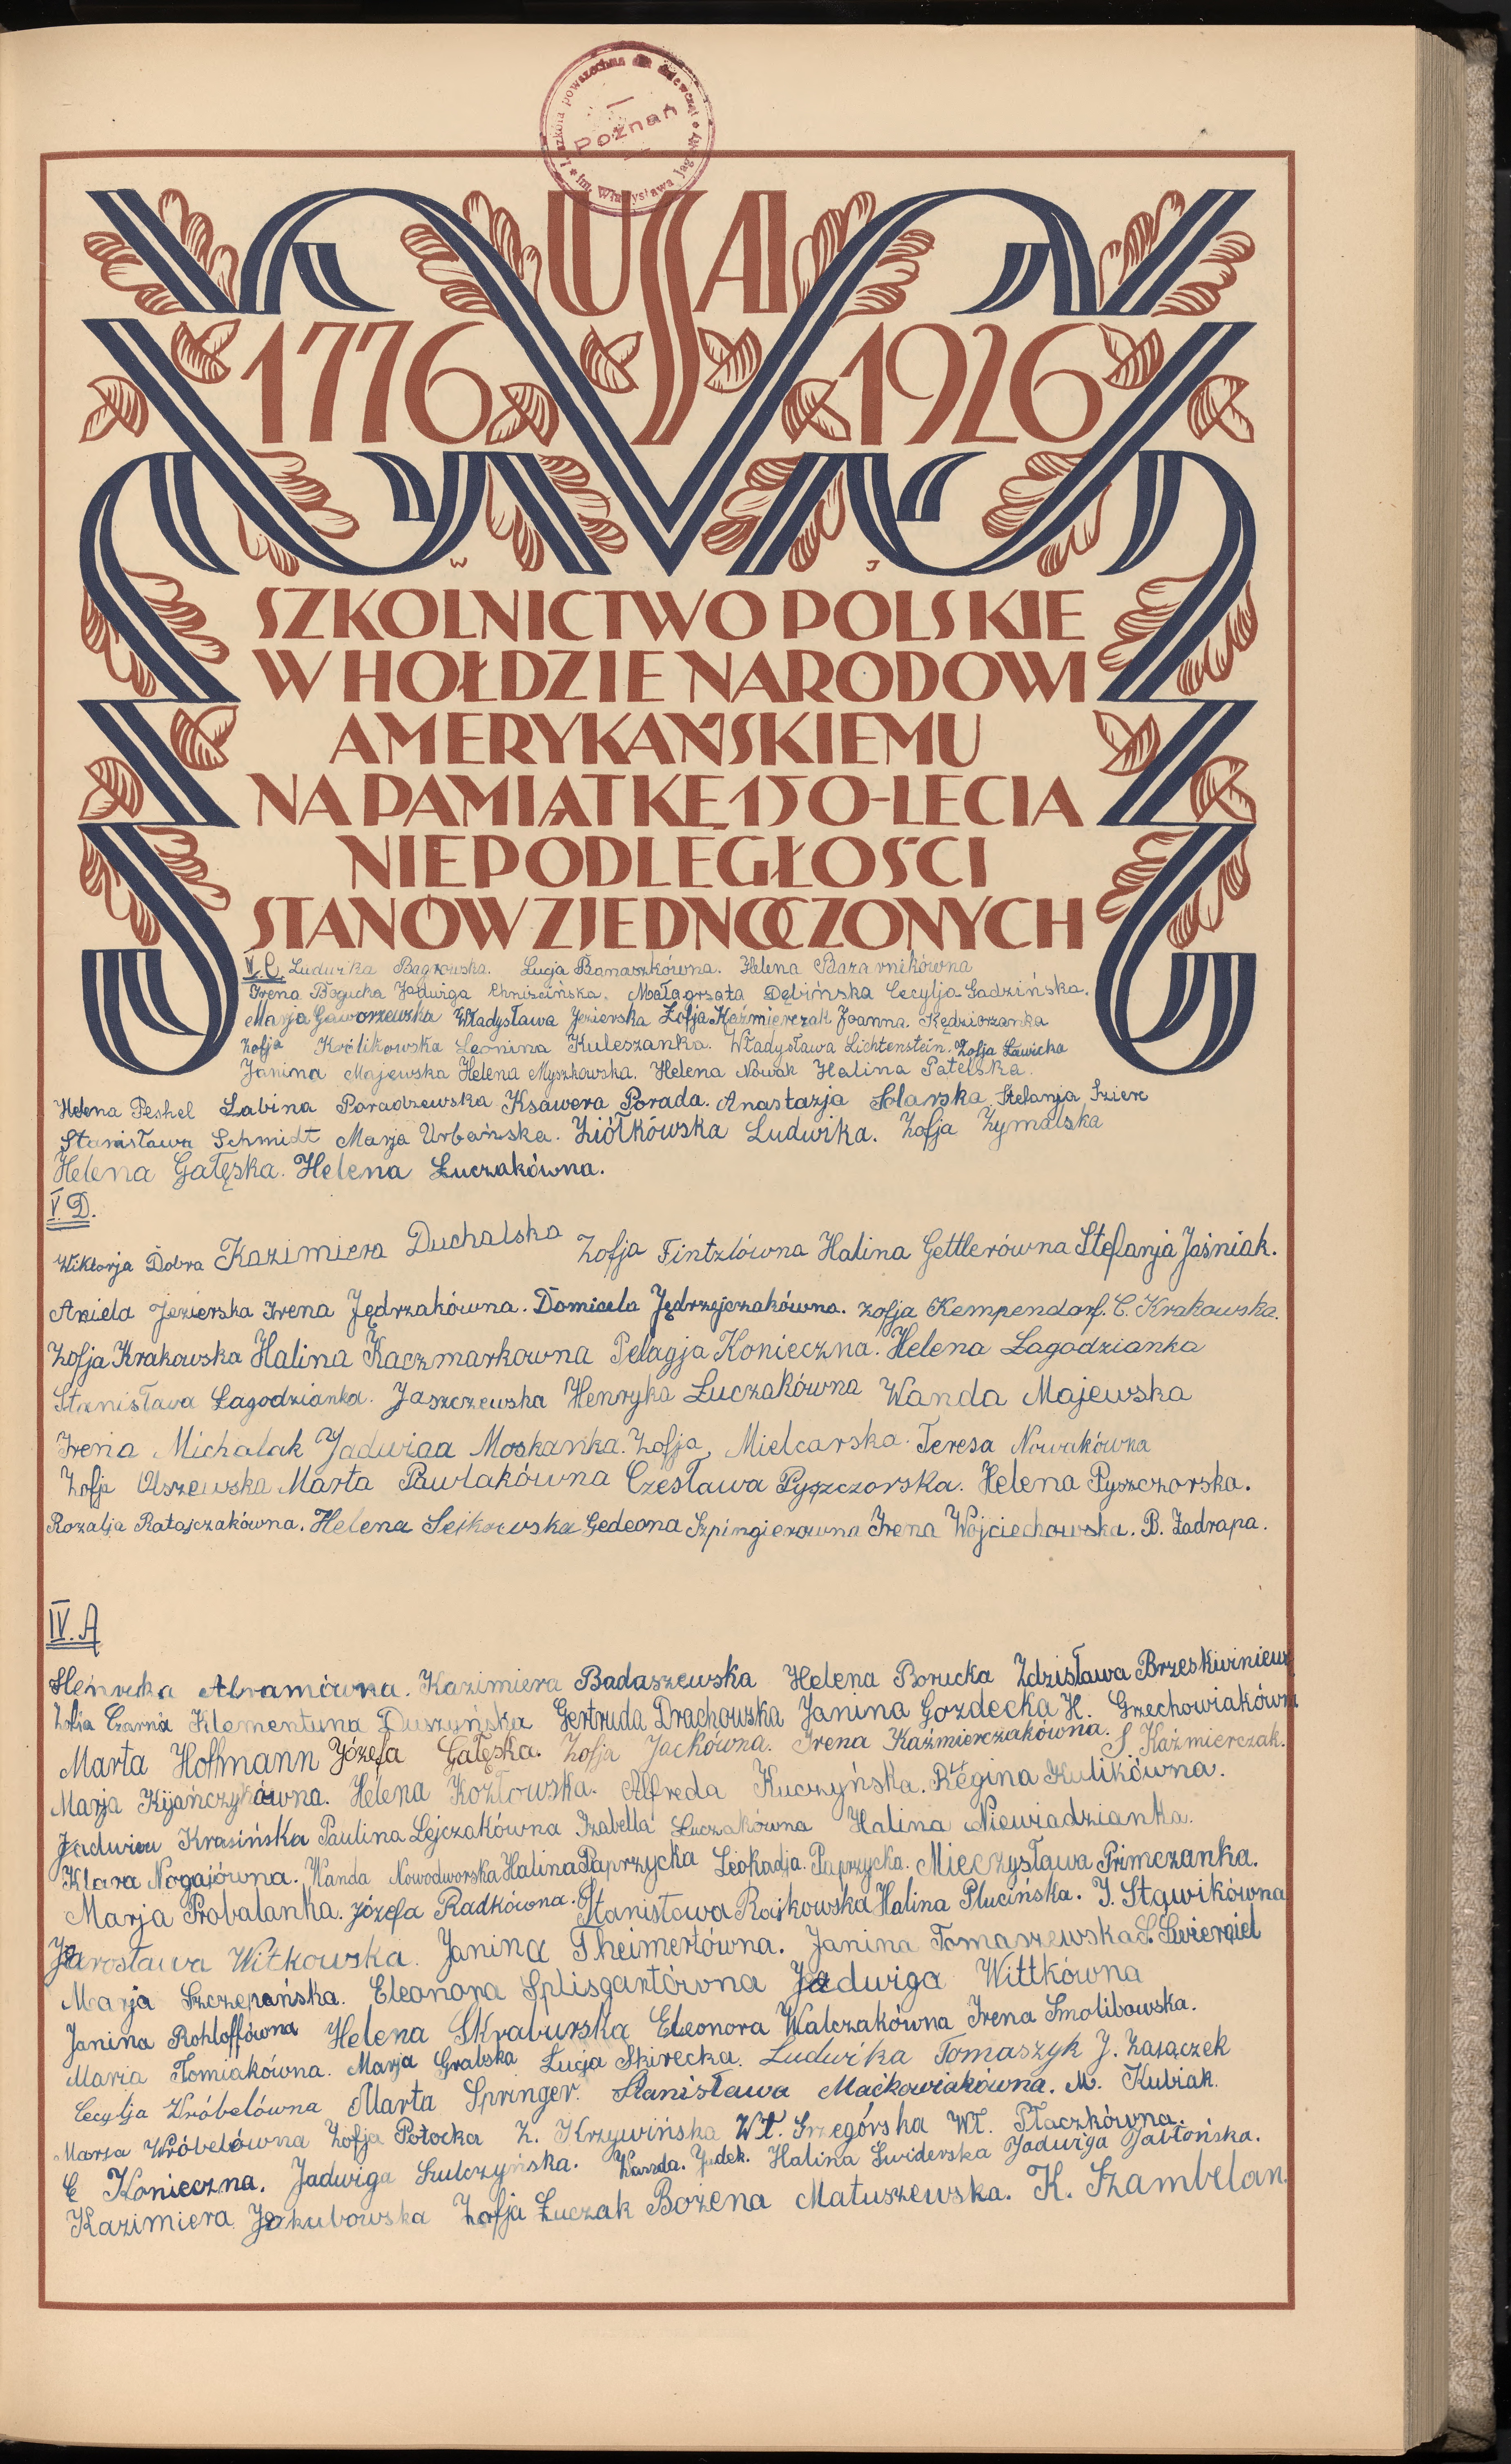 I szkoła powszechna dla dziewcząt * im. Władysława Jagiełły *
Poznań
USA
1776 1926
W J
SZKOLNICTWO POLSKIE
W HOŁDZIE NARODOWI
AMERYKAŃSKIEMU
NA PAMIĄTKĘ 150-LECIA
NIEPODLEGŁOŚCI
STANÓW ZJEDNOCZONYCH
V. C. Ludwika Bagrowska. Łucja Banaszkówna. Helena
Irena Bogucha Jadwiga Chniścińska. Małagorzata Dębińska Cecylja Gadzińska.
Marja Gaworzewska Władysława Jezierska Zofja Kaźmierczak Joanna Kędziorzanka
Zofja Królikowska Leonina Kuleszanka. Władysława Lichtenstein. Zofja Ławicka
Janina Majewska Helena Myszkowska. Helena Nowak Halina Patelska.
Helena Peshel Sabina Paradzewska Ksawera Porada. Anastazja Solarska Stefanja
Stanisława Schmidt Marja Urbańska. Ziółkówska Ludwika. Zofja Zymalska
Helena Gałęska. Helena Łuczakówna.
V. D.
Wiktorja Dobra Kazimiera Duchalska Zofja Fintzlówna Halina Gettlerówna Stefanja Jaśniak.
Aniela Jezierska Irena Jędrzakówna. Domicela Jędrzejczakówna. Zofja Kempendorf. C. Krakowska.
Zofja Krakowska Halina Kaczmarkowna Pelagja Konieczna. Helena Łagodzianka
Stanisława Łagodzianka. Jaszczewska Henryka Łuczakówna Wanda Majewska
Irena Michalak Jadwiga Moskanka. Zofja Mielcarska. Teresa Nowakówna
Zofja Olszewska Marta Pawlakówna Czesława Pyszczorska. Helena Pyszczorska.
Rozalja Ratajczakówna. Helena Seikowska Gedeona Szpingierowna Irena Wojciechowska. B. Zadrapa.
IV. A
Henryka Abramówna. Kazimiera Badaszewska Helena Borucka Zdzisława
Zofja Czarna Klementyna Duszyńska Gertruda Drachowska Janina Gozdecka H. Grzechowiakówna
Marta Hoffmann Józefa Gałęska. Zofja Jackówna. Irena Kaźmierczakówna. S Kaźmierczak.
Marja Kijańczykówna. Helena Kozłowska. Alfreda Kuczyńska. Regina Kulikówna.
Jadwiga Krasińska Paulina Lejczakówna Izabella Łuczakówna Halina Niewiadzianka.
Klara Nogajówna. Wanda Nowodworska Halina Paprzycka Leokadja Paprzycka. Mieczysława Primczanka.
Marja Probalanka. Józefa Radkówna. Stanisława Rajkowska Halina Plucińska. J. Stawikówna
Jarosława Witkowska. Janina Theimertówna. Janina Tomaszewska S. Swiergiel
Marja Szczepańska. Eleonora Splisgartówna Jadwiga Wittkówna
Janina Rohloffówna Helena Skraburska Eleonora Walczakówna Irena Smolibowska.
Maria Tomiakówna. Marja Grabska Łucja Skirecka. Ludwika Tomaszyk J. Zasączek
Cecylja Wróbelówna Marta Springer. Stanisława Maćkowiakówna. M. Kubiak.
Marja Wróbelówna Zofja Potocka Z. Krzywińska Wł. Grzegórska Wł. Ptaczkówna.
C Konieczna. Jadwiga Szulczyńska. Wanda Judek. Halina Swiderska Jadwiga Jabłońska.
Kazimiera Jakubowska Zofja Łuczak Bożena Matuszewska. K. Szambelan.